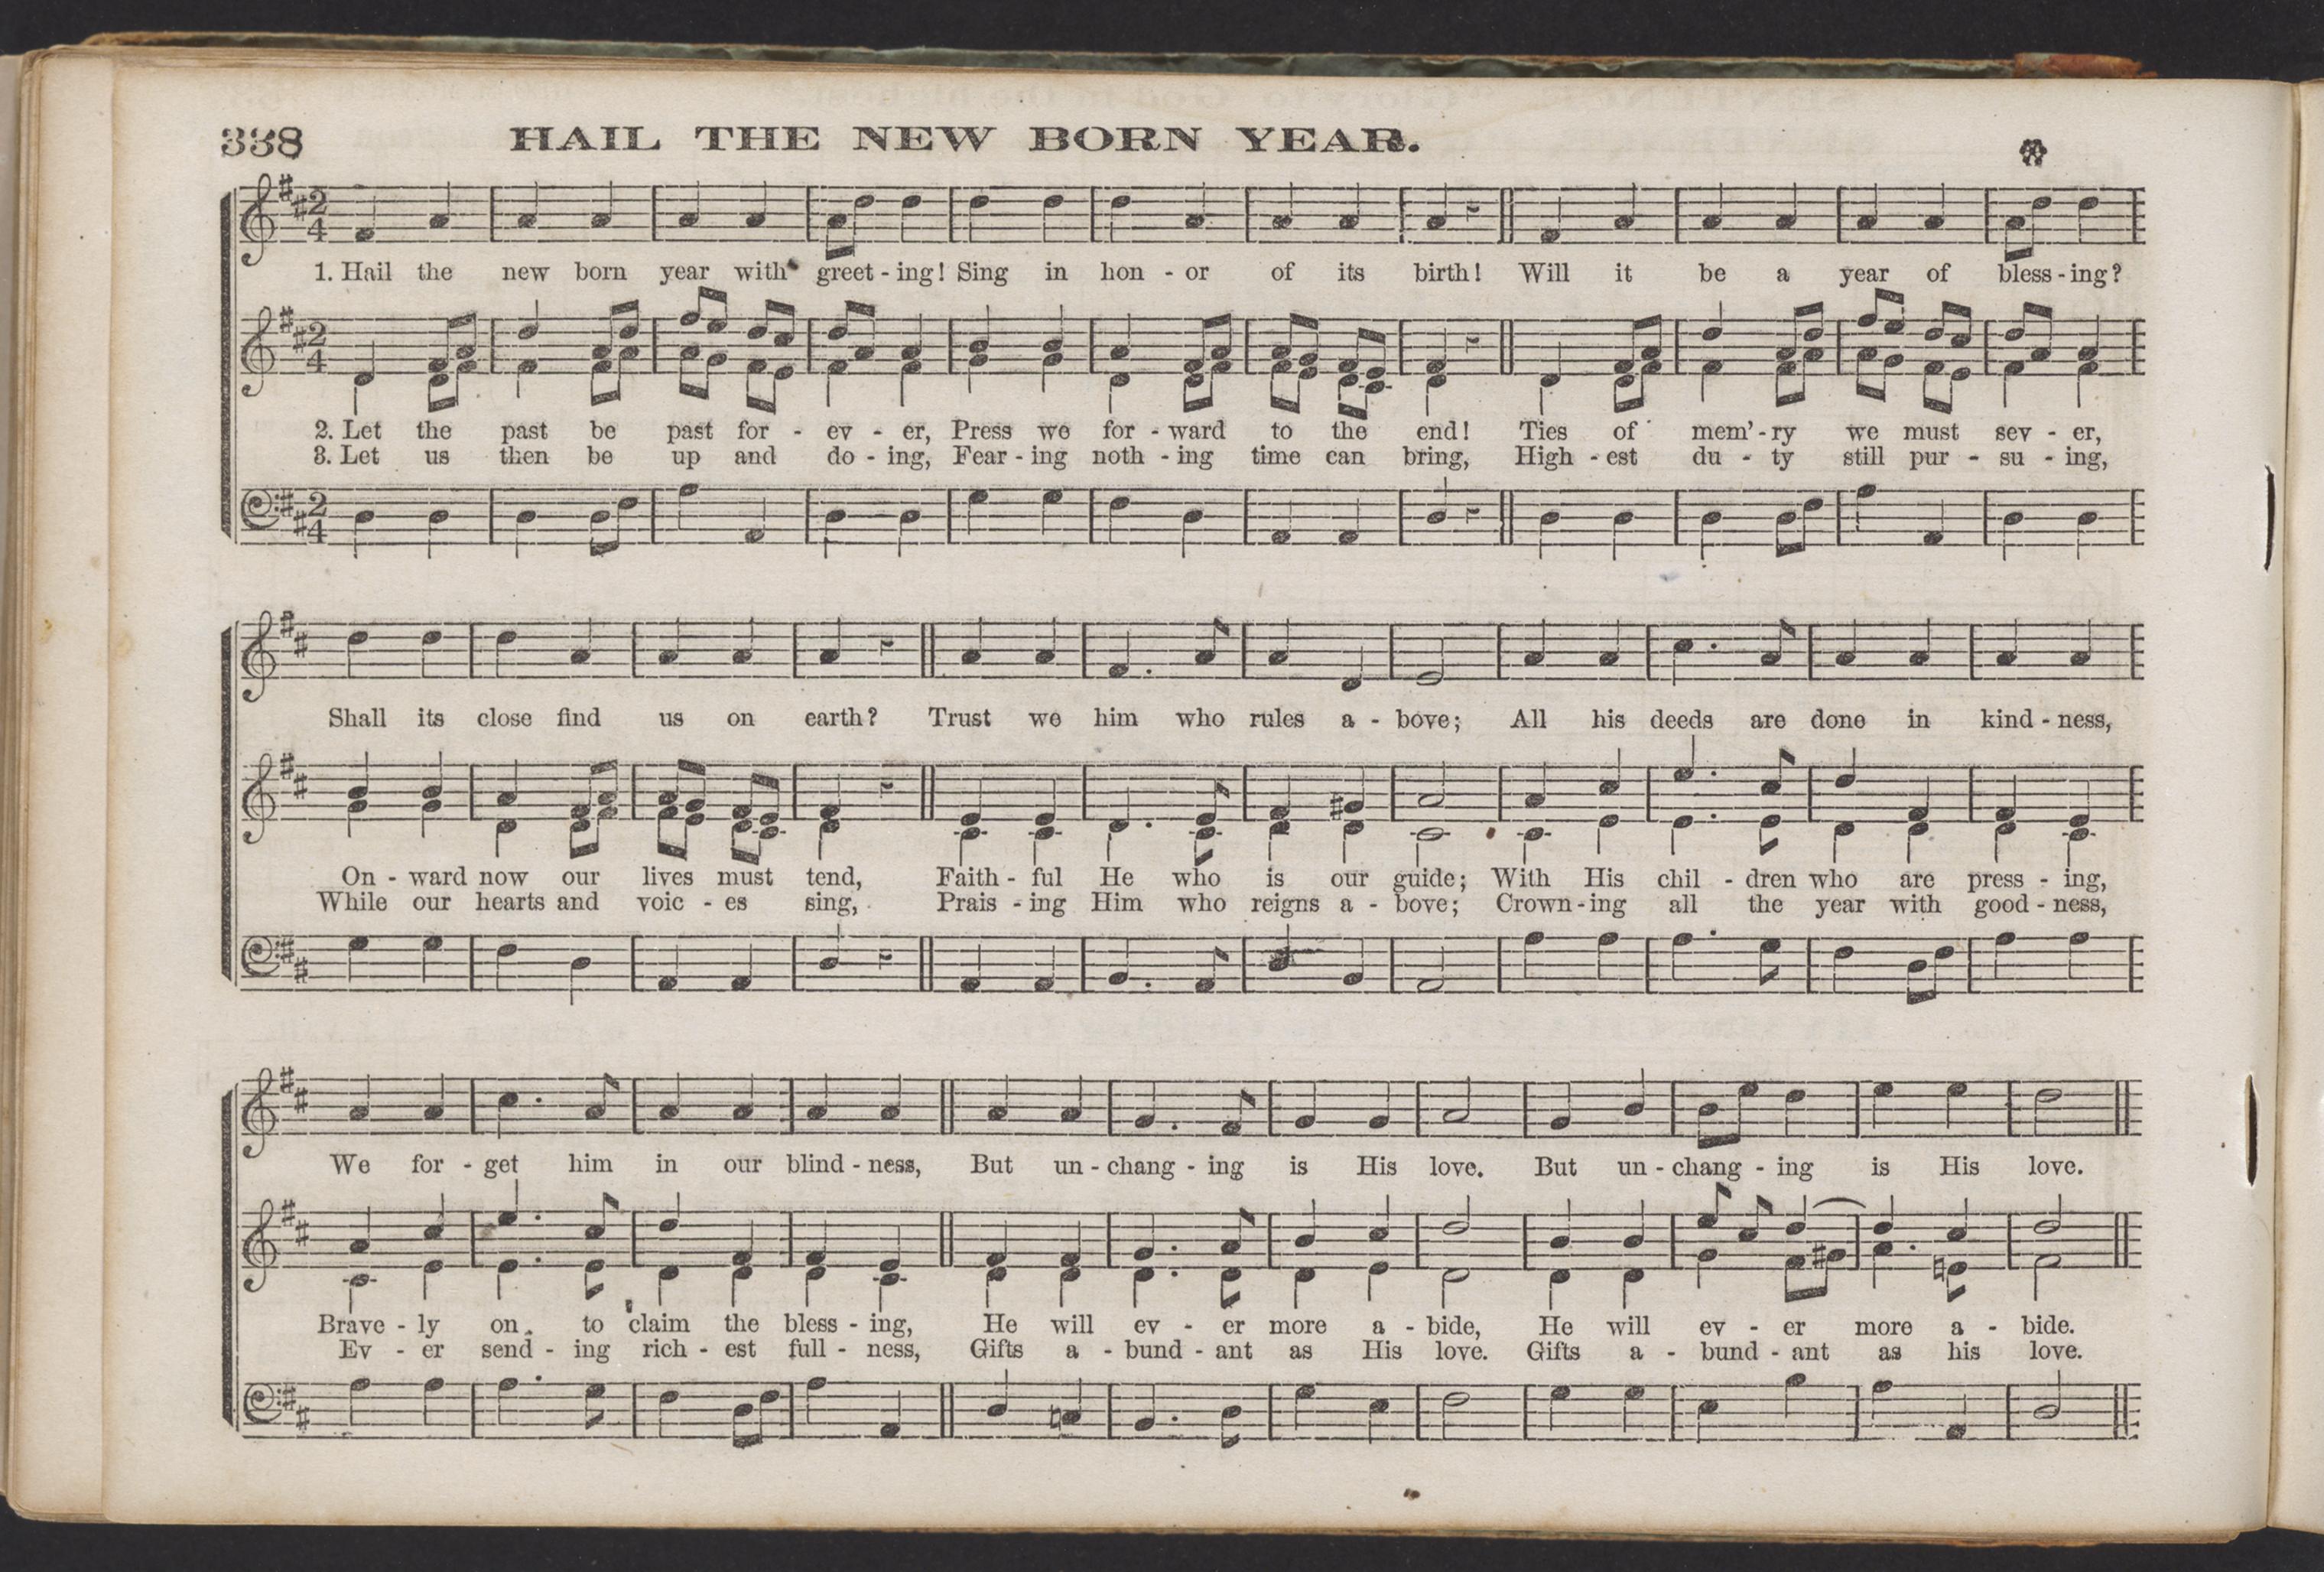 338 HAIL THE NEW BORN YEAR.
2
4
1. Hail the new born year with greet - ing! Sing in hon - or of its birth! Will it be a year of bless - ing?
2
4
2. Let the past be past for - ev - er, Press we for - ward to the end! Ties of mem' - ry we must sev - er,
3. Let us then be up and do - ing, Fear - ing noth - ing time can bring, High - est du - ty still pur - su - ing,
2
4
Shall its close find us on earth? Trust we him who rules a - bove; All his deeds are done in kind - ness,
On - ward now our lives must tend, Faith - ful He who is our guide; With His chil - dren who are press - ing,
While our hearts and voic - es sing, Prais - ing Him who reigns a - bove; Crown - ing all the year with good - ness,
We for - get him in our blind - ness, But un - chang - ing is His love. But un - chang - ing is His love.
Brave - ly on to claim the bless - ing, He will ev - er more a - bide, He will ev - er more a - bide.
Ev - er send - ing rich - est full - ness, Gifts a - bund - ant as His love. Gifts a - bund - ant as his love.